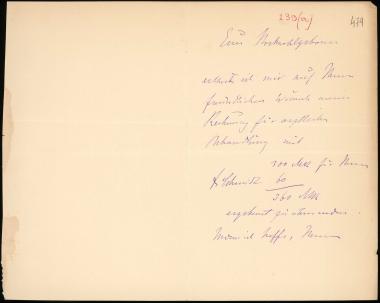 239(a)
479
Euer Hochwohlgeboren
erlaube ich mir auf Ihren
freundlichen Wunsch meine
Rechnung für ärztliche
Behandlung mit
300 Mk für Ihnen
60
360 Mk
ergebenst zu übersenden.
Indem ich hoffe, Ihnen